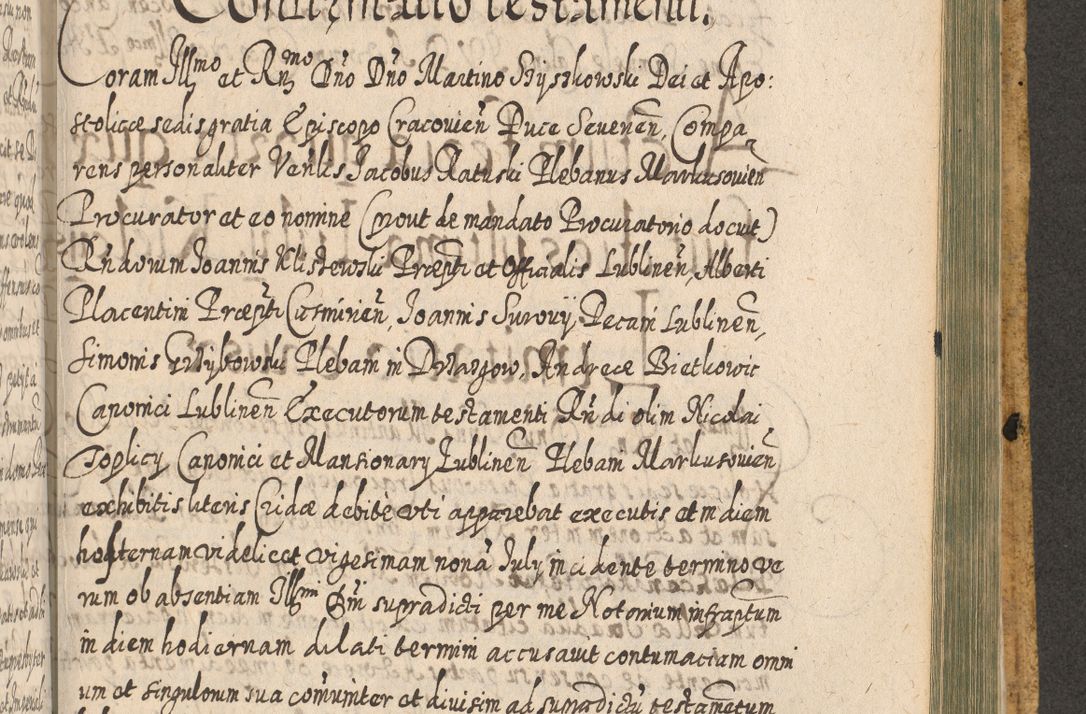 Confirmatio testamenti.
Coram Illmo et Rndmo Dno Dno Martino Szyszkowski Dei et Apo:
stolicæ sedis gratia Episcopo Cracovien Duce Severien, Compa
rens personaliter Venlis Jacobus Ratuski Plebanus Markusovien
Procurator et eo nomine (prout de mandato Procuratorio docuit)
Rndorum Joannis Klistewski Præpti et Officialis Lublinen, Alberti
Placentini Præpti Casmirien, Joannis Surovij Decani Lublinen,
Simonis Grzybowski Plebani in Drzazgow, Andreæ Bietkowic
Canonici Lublinen Executorum testamenti Rndi olim Nicolai
Toplicy Canonici et Mansionary Lublinen Plebani Markusovien
exhibitis literis Cridæ debitè uti apparebat executis et in diem
hesternam videlicet vigesimam nona July incidente termino ve
rum ob absentiam Illmi Dni supradicti per me Notarium infraptum
in diem hodiernam dilati termini accusavit contumaciam omni
um et singulorum sua comuniter et divisim ad supradictu testametum